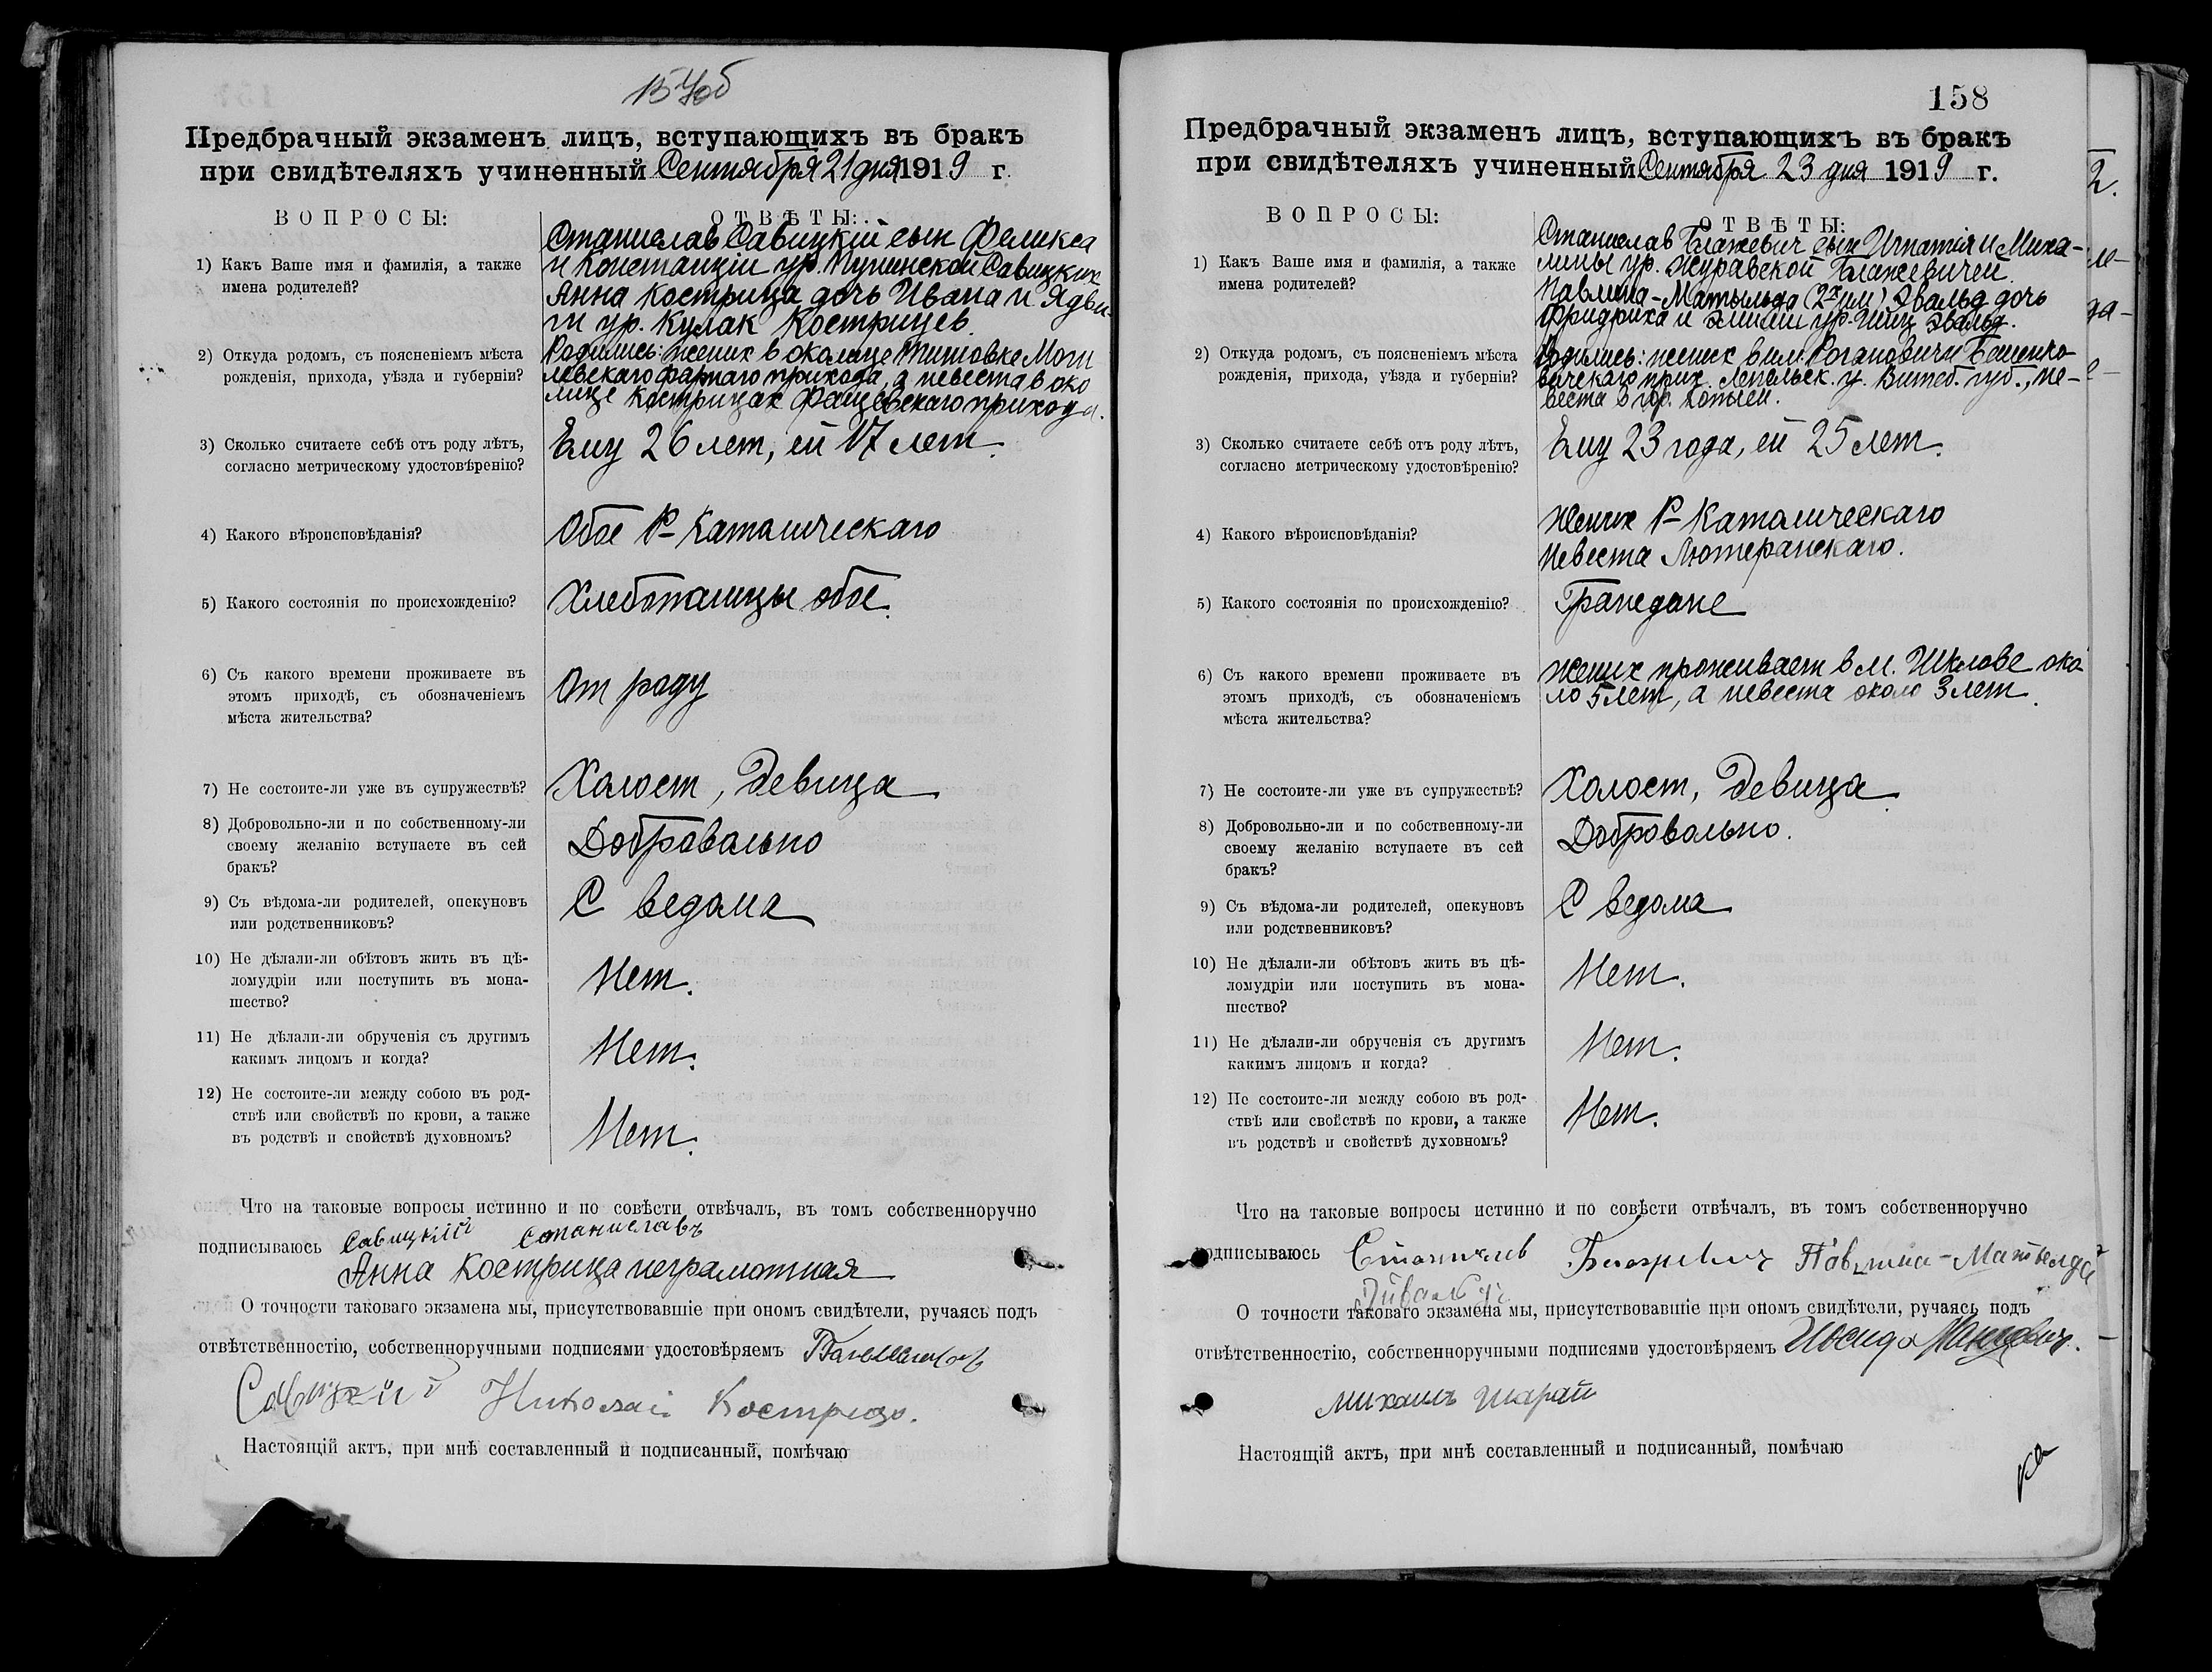 157об
Предбрачный экзаменъ лицъ, вступающихъ въ бракъ
при свидѣтеляхъ учиненный Сентября 21 дня 1919 г.
ВОПРОСЫ:
ОТВѢТЫ:
1) Какъ Ваше имя и фамилія, а также
имена родителей?
Станислав Савицкій сын Феликса
и Констанціи ур. Тупинской Савицких
Анна Кострица дочь Ивана и Ядви-
ги ур. Кулак Кострицев.
2) Откуда родомъ, съ поясненіемъ мѣста
рожденія, прихода, уѣзда и губерніи?
Родились: жених в околице Титовке Мог
левскаго фарнаго прихода, а невеста в око
лице Кострицах Фащевскаго прихода.
3) Сколько считаете себѣ отъ роду лѣтъ,
согласно метрическому удостовѣренію?
Ему 26 лет, ей 17 лет.
4) Какого вѣроисповѣданія?
Обое Р-Каталическаго
5) Какого состоянія по происхожденію?
Хлебопашцы обое.
6) Съ какого времени проживаете въ
этомъ приходѣ, съ обозначеніемъ
мѣста жительства?
От роду
7) Не состоите-ли уже въ супружествѣ?
Холост, Девица
8) Добровольно-ли и по собственному-ли
своему желанію вступаете въ сей
бракъ?
Добровально
9) Съ вѣдома-ли родителей, опекуновъ
или родственниковъ?
С ведома
10) Не дѣлали-ли обѣтовъ жить въ цѣ-
ломудріи или поступить въ мона-
шество?
Нет.
11) Не дѣлали-ли обрученія съ другимъ
какимъ лицомъ и когда?
Нет.
12) Не состоите-ли между собою въ род-
ствѣ или свойствѣ по крови, а также
въ родствѣ и свойствѣ духовномъ?
Нет.
Что на таковые вопросы истинно и по совѣсти отвѣчалъ, въ томъ собственноручно
подписываюсь Савицкій Станиславъ
Анна Кострица неграмотная
О точности таковаго экзамена мы, присутствовавшіе при ономъ свидѣтели, ручаясь подъ
отвѣтственностію, собственноручными подписями удостовѣряемъ
Савицкий Николай Кострицо.
Настоящій актъ, при мнѣ составленный и подписанный, помѣчаю
158
Предбрачный экзаменъ лицъ, вступающихъ въ бракъ
при свидѣтеляхъ учиненный Сентября 23 дня 1919 г.
ВОПРОСЫ:
ОТВѢТЫ:
1) Какъ Ваше имя и фамилія, а также
имена родителей?
Станислав Блажевич сын Игнатія и Миха-
лины ур. Журавской Блажевичей
Павлина-Матыльда (2х им) Эвальд дочь
Фридриха и Эмилии ур. Эвальд.
2) Откуда родомъ, съ поясненіемъ мѣста
рожденія, прихода, уѣзда и губерніи?
Родились: жених в им. Рогановичи Бешенко-
вичскаго прих. Лепельск. у. Витеб. губ., не-
веста в гор. Копыси.
3) Сколько считаете себѣ отъ роду лѣтъ,
согласно метрическому удостовѣренію?
Ему 23 года, ей 25 лет.
4) Какого вѣроисповѣданія?
Жених Р-Каталическаго
Невеста Лютеранскаго.
5) Какого состоянія по происхожденію?
Граждане
6) Съ какого времени проживаете въ
этомъ приходѣ, съ обозначеніемъ
мѣста жительства?
Жених проживает в м. Шклове око
ло 5 лет, а невеста около 3 лет.
7) Не состоите-ли уже въ супружествѣ?
Холост, Девица
8) Добровольно-ли и по собственному-ли
своему желанію вступаете въ сей
бракъ?
Добровольно.
9) Съ вѣдома-ли родителей, опекуновъ
или родственниковъ?
С ведома
10) Не дѣлали-ли обѣтовъ жить въ цѣ-
ломудріи или поступить въ мона-
шество?
Нет.
11) Не дѣлали-ли обрученія съ другимъ
какимъ лицомъ и когда?
Нет.
12) Не состоите-ли между собою въ род-
ствѣ или свойствѣ по крови, а также
въ родствѣ и свойствѣ духовномъ?
Нет.
Что на таковые вопросы истинно и по совѣсти отвѣчалъ, въ томъ собственноручно
подписываюсь Станислав Блажевич Павлина-Матыльда
О точности таковаго экзамена мы, присутствовавшіе при ономъ свидѣтели, ручаясь подъ
отвѣтственностію, собственноручными подписями удостовѣряемъ
Михаилъ Шарай
Настоящій актъ, при мнѣ составленный и подписанный, помѣчаю